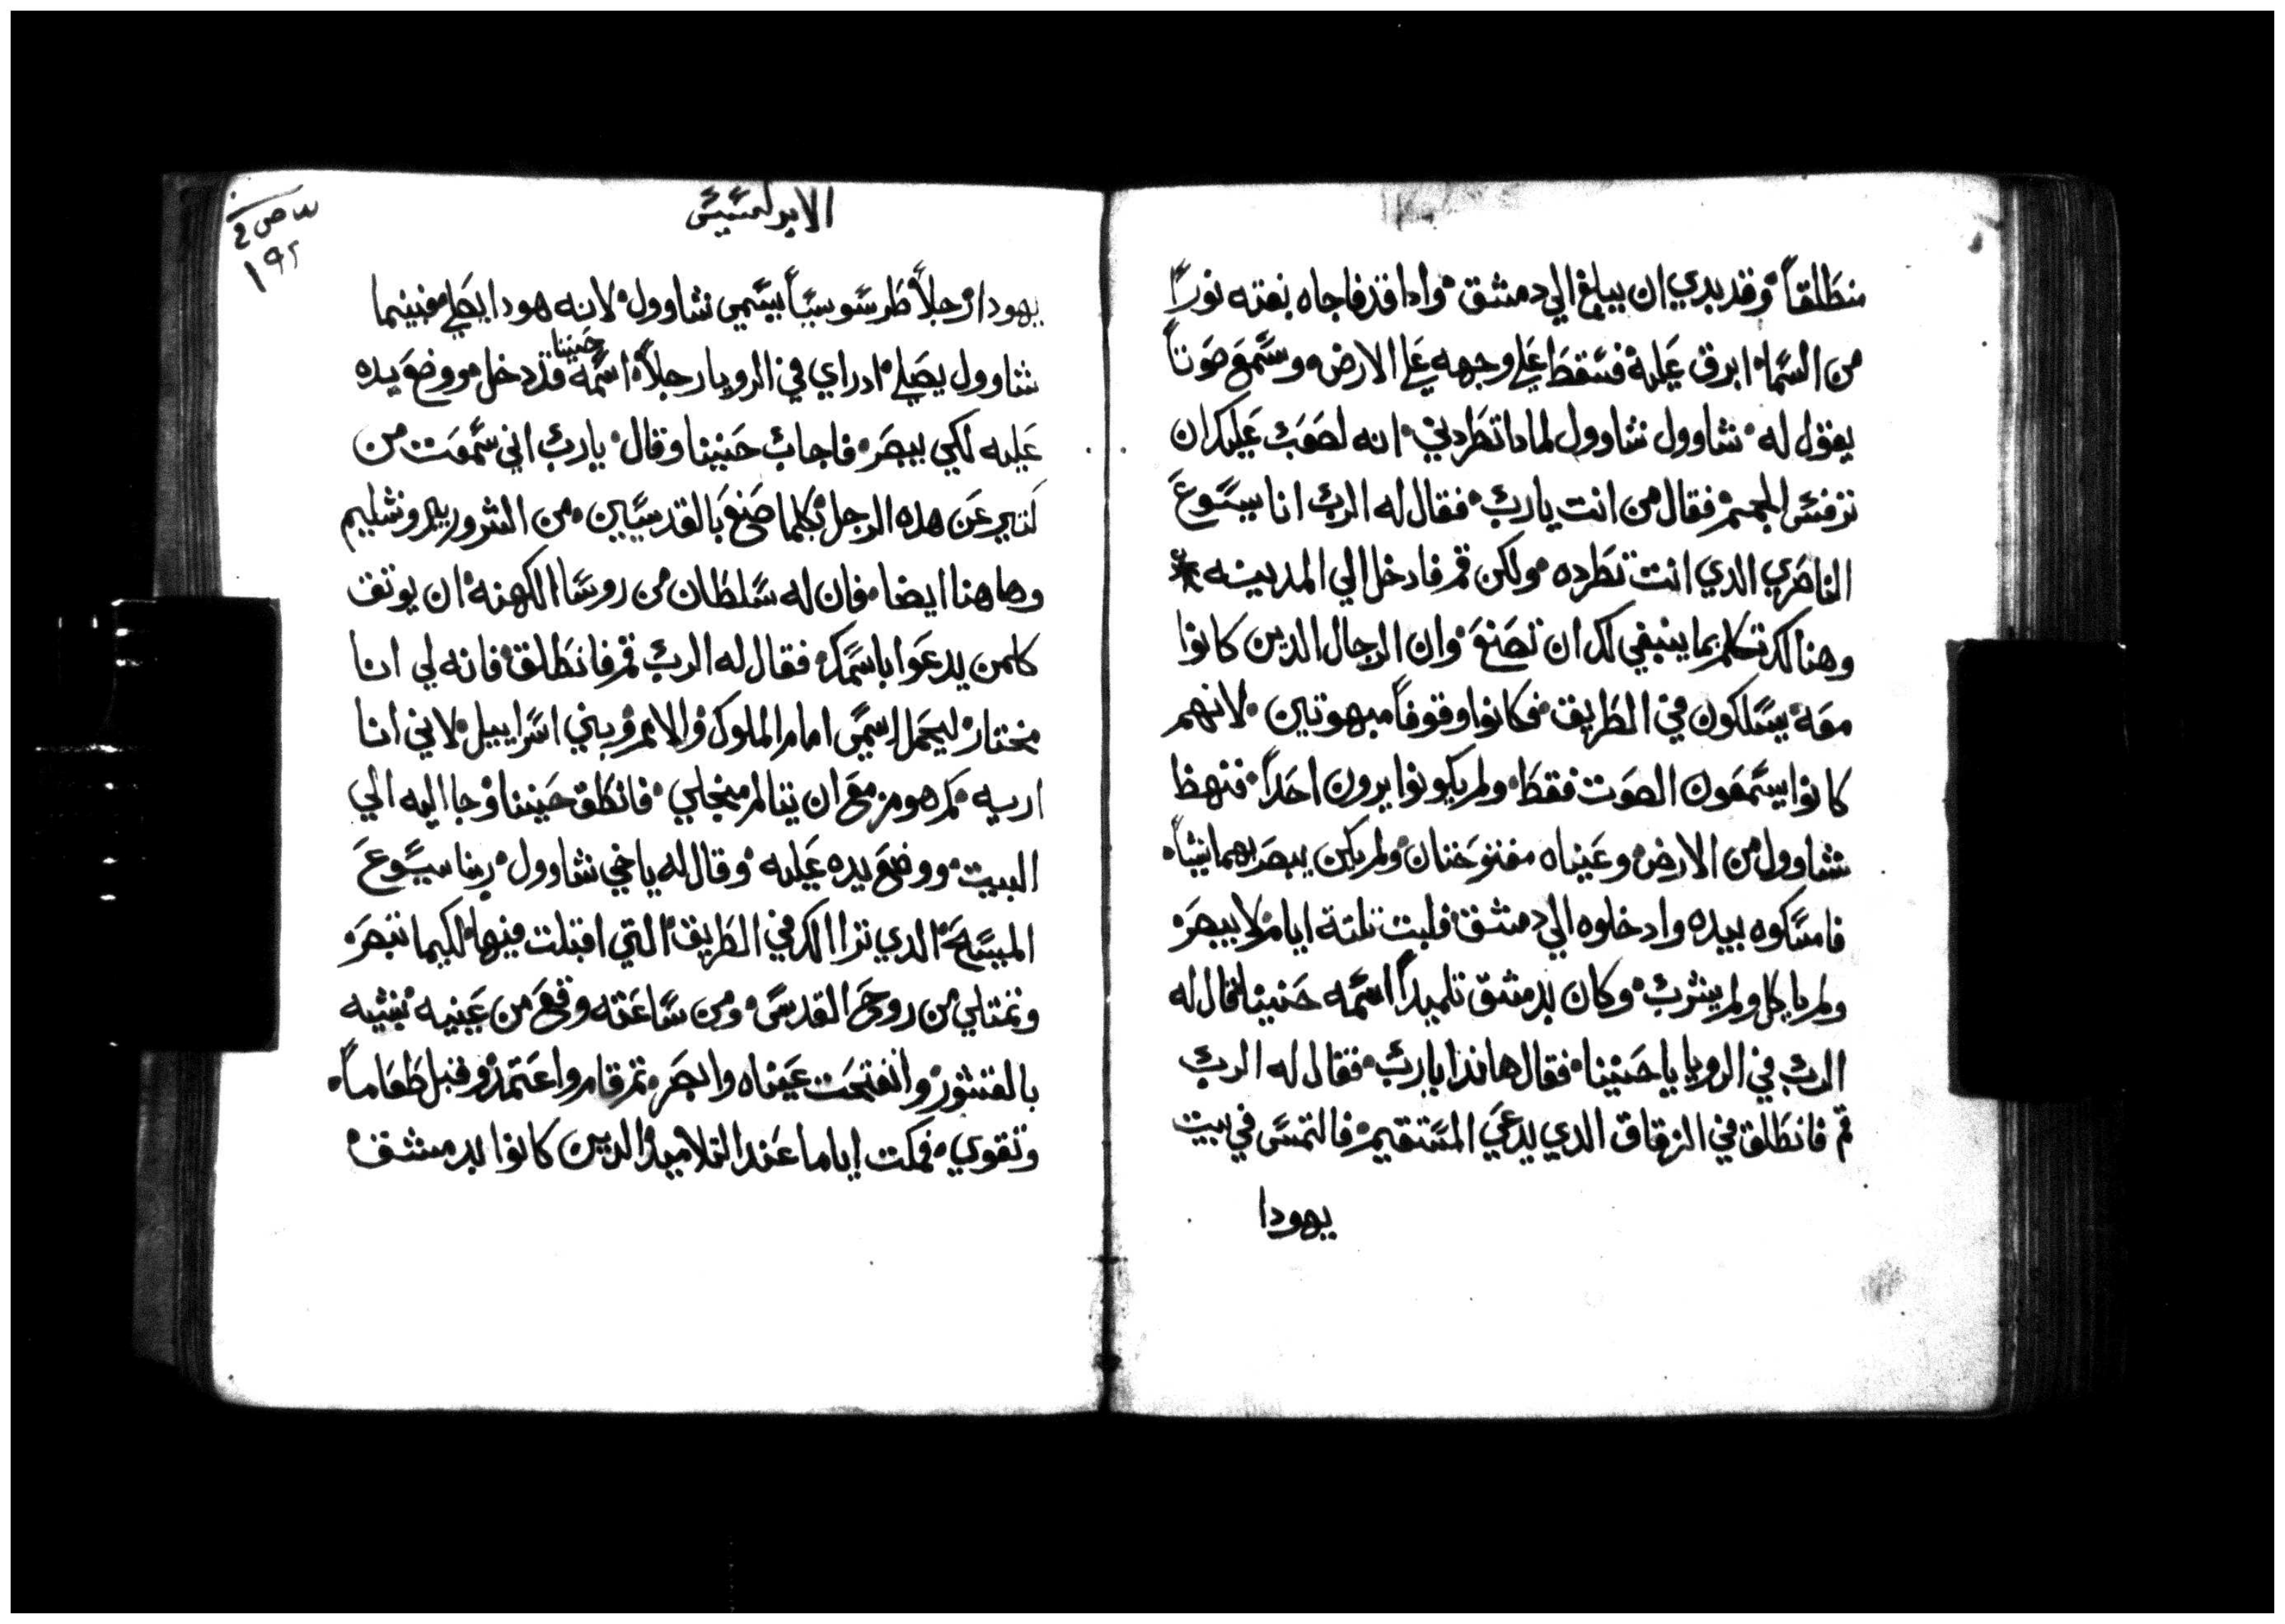 منطلقاً وقد بدي ان يبلغ الي دمشق واذا قد فاجاه بغته نوراً
من السما ابرق عليه فسقط علي وجهه علي الارض وسمع صوتاً
يقول له شاوول شاوول لماذا تطردني انه لصعب عليك ان
ترفس المجمر فقال من انت يارب فقال له الرب انا يسوع
الناصري الدي انت تطرده ولكن قم فادخل الي المدينه
وهنالك تكلم بما ينبغي لك ان تصنع وان الرجال الدين كانوا
معه يسلكون في الطريق فكانوا وقوفاً مبهوتين لانهم
كانوا يسمعون الصوت فقط ولم يكونوا يرون احداً فنهظ
شاوول من الارض وعيناه مفتوحتان ولم يكن يبصر بهما شياً
فامسكوه بيده وادخلوه الي دمشق فلبت تلتة ايام لا يبصر
ولم ياكل ولم يشرب وكان بدمشق تلميداً اسمه حنينا فقال له
الرب في الرويا يا حنينا فقال هاندا يارب فقال له الرب
قم فانطلق في الزقاق الدي يدعي المستقيم فالتمس في بيت
يهودا
الابركسيس
١٩٢
يهودا رجلاً طرسوسياً يسمي شاوول لانه هودا يصلي فبينما
شاوول يصلي اد راي في الرويا رجلاً اسمه حنينا قد دخل ووضع يده
عليه لكي يبصر فاجاب حنينا وقال يارب اني سمعت من
كتير عن هده الرجل بكلما صنع بالقديسين من الشرور بيروشليم
وهاهنا ايضا فان له سلطان من روسا الكهنه ان يوتق
كلمن يدعوا باسمك فقال له الرب قم فانطلق فانه لي انا
مختار ليحمل اسمي امام الملوك والامم وبني اسراييل لاني انا
اريه كم هو مزمع ان يتالم مينجلي فانطلق حنينا وجا اليه الي
البيت ووضع يده عليه وقال له ياخي شاوول ربنا يسوع
المسيح الدي ترا الك في الطريق التي اقبلت فيها لكيما تبصر
وتمتلي من روح القدس ومن ساعته وقع من عينيه شبيه
بالقشور وانفتحت عيناه وابصر تم قام واعتمد وقبل طعاماً
وتقوي فمكت اياما عند التلاميد الدين كانوا بدمشق